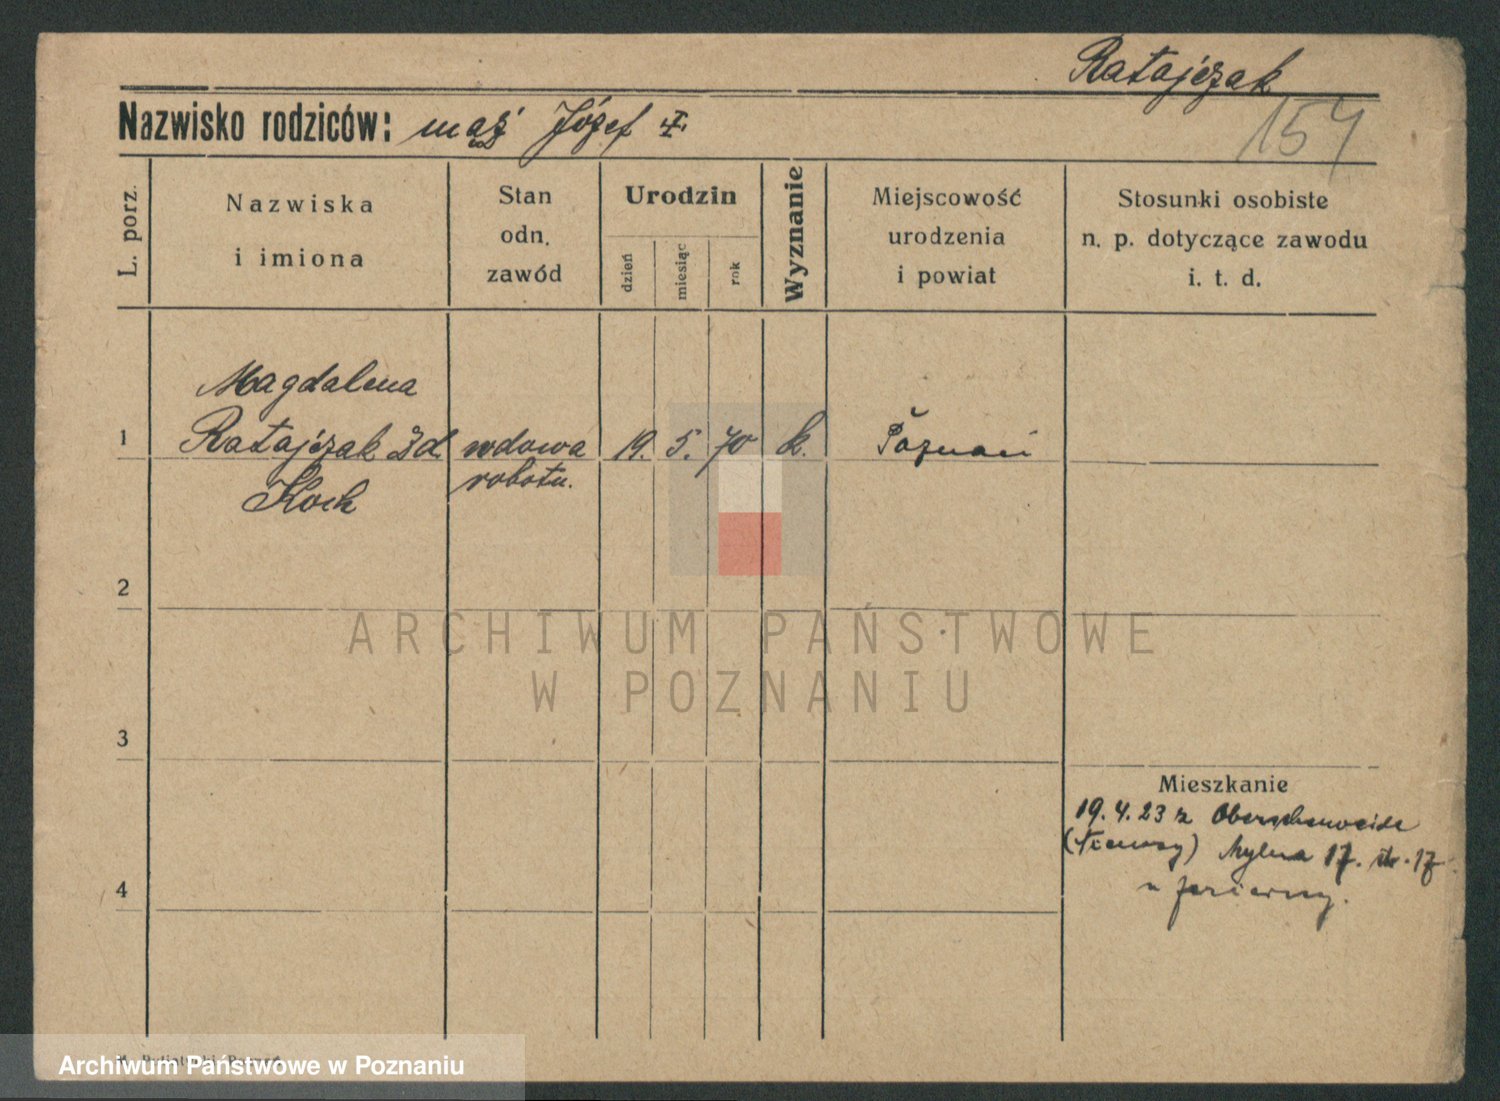 Ratajczak
Nazwisko rodziców: mąż Józef
154
L. porz.
Nazwiska
i imiona
Stan
odn.
zawód
Urodzin
dzień
miesiąc
rok
Wyznanie
Miejscowość
urodzenia
i powiat
Stosunki osobiste
n. p. dotyczące zawodu
i. t. d.
Magdalena
1 Ratajczak zd wdowa 19. 5. 70 k. Poznań
Koch robotn.
2
ARCHIWUM PAŃSTWOWE
W POZNANIU
3
Mieszkanie
19.4.23 z Oberschönweide
(Niemcy) Mylna 17. 17
4
Archiwum Państwowe w Poznaniu